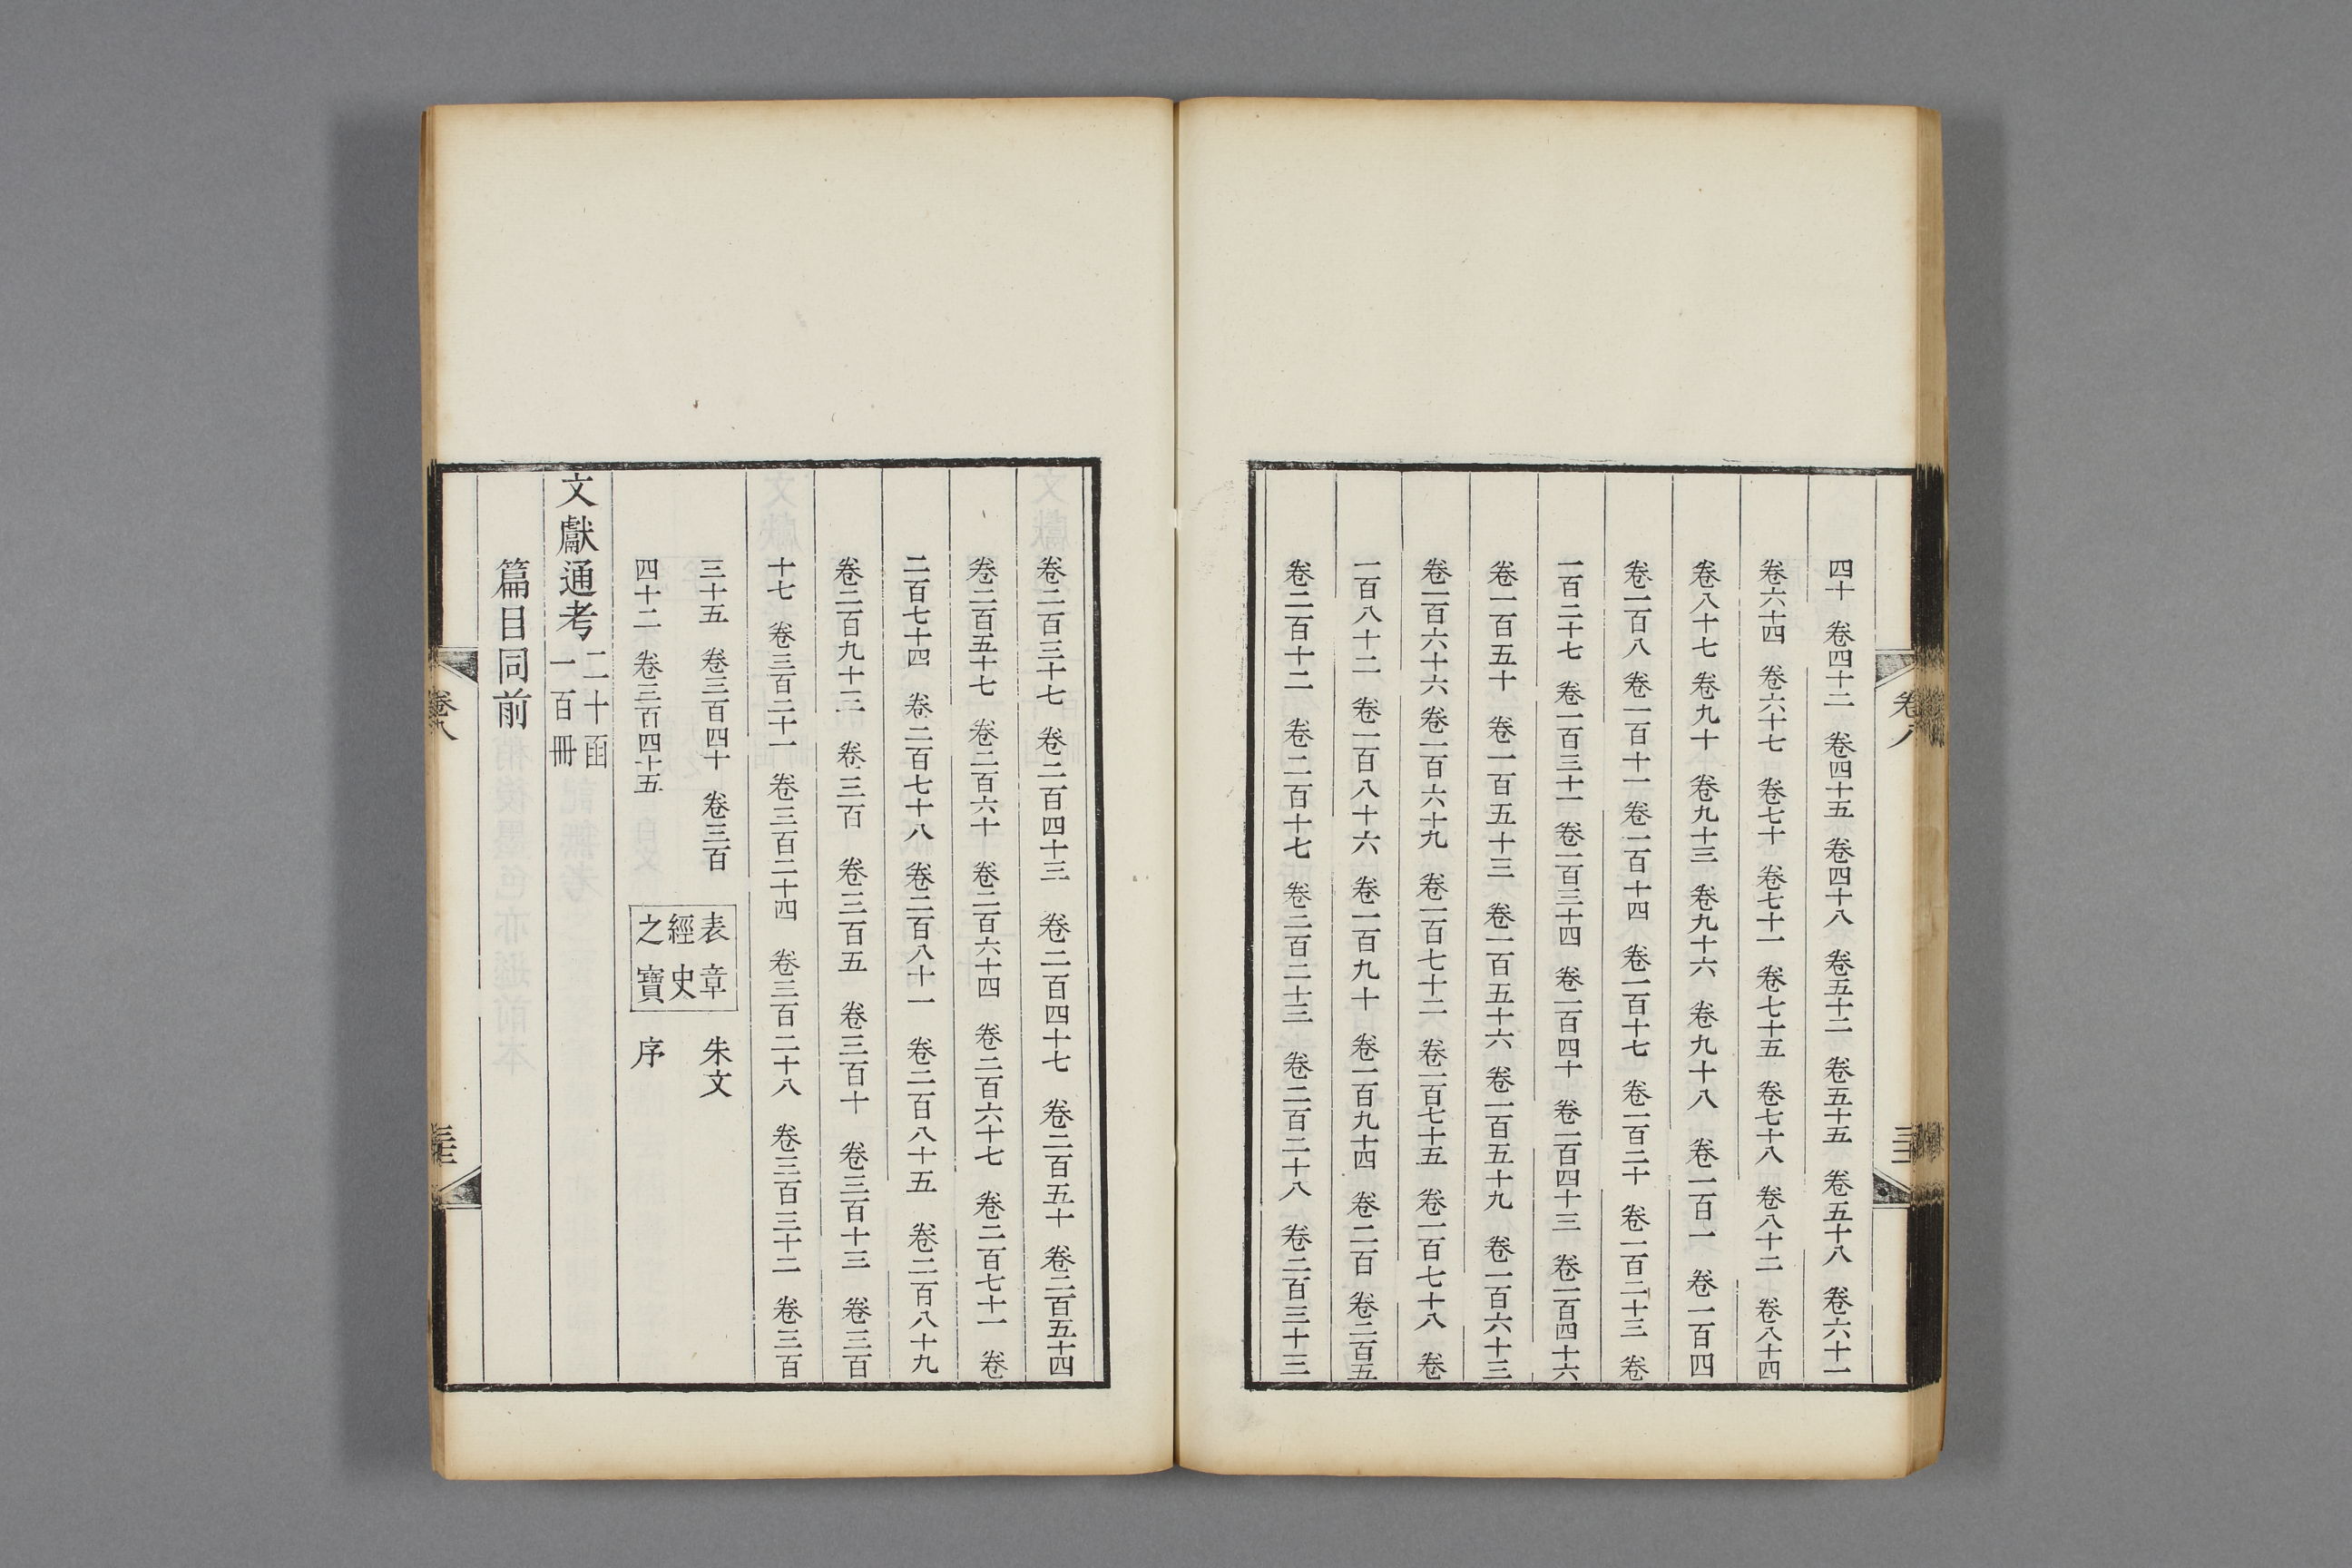 四十 卷四十二 卷四十五 卷四十八 卷五十二 卷五十五 卷五十八 卷六十一
卷六十四 卷六十七 卷七十 卷七十一 卷七十五 卷七十八 卷八十二 卷八十四
卷八十七 卷九十 卷九十三 卷九十六 卷九十八 卷一百一 卷一百四
卷一百八 卷一百十一 卷一百十四 卷一百十七 卷一百二十 卷一百二十三 卷
一百二十七 卷一百三十一 卷一百三十四 卷一百四十 卷一百四十三 卷一百四十六
卷一百五十 卷一百五十三 卷一百五十六 卷一百五十九 卷一百六十三
卷一百六十六 卷一百六十九 卷一百七十二 卷一百七十五 卷一百七十八 卷
一百八十二 卷一百八十六 卷一百九十 卷一百九十四 卷二百 卷二百五
卷二百十二 卷二百十七 卷二百二十三 卷二百二十八 卷二百三十三
卷八
卷二百三十七 卷二百四十三 卷二百四十七 卷二百五十 卷二百五十四
卷二百五十七 卷二百六十 卷二百六十四 卷二百六十七 卷二百七十一 卷
二百七十四 卷二百七十八 卷二百八十一 卷二百八十五 卷二百八十九
卷二百九十二 卷三百 卷三百五 卷三百十 卷三百十三 卷三百
十七 卷三百二十一 卷三百二十四 卷三百二十八 卷三百三十二 卷三百
三十五 卷三百四十 卷三百
四十二 卷三百四十五
表章
經史
之寶
朱文
序
文獻通考
二十函
一百冊
篇目同前
卷八